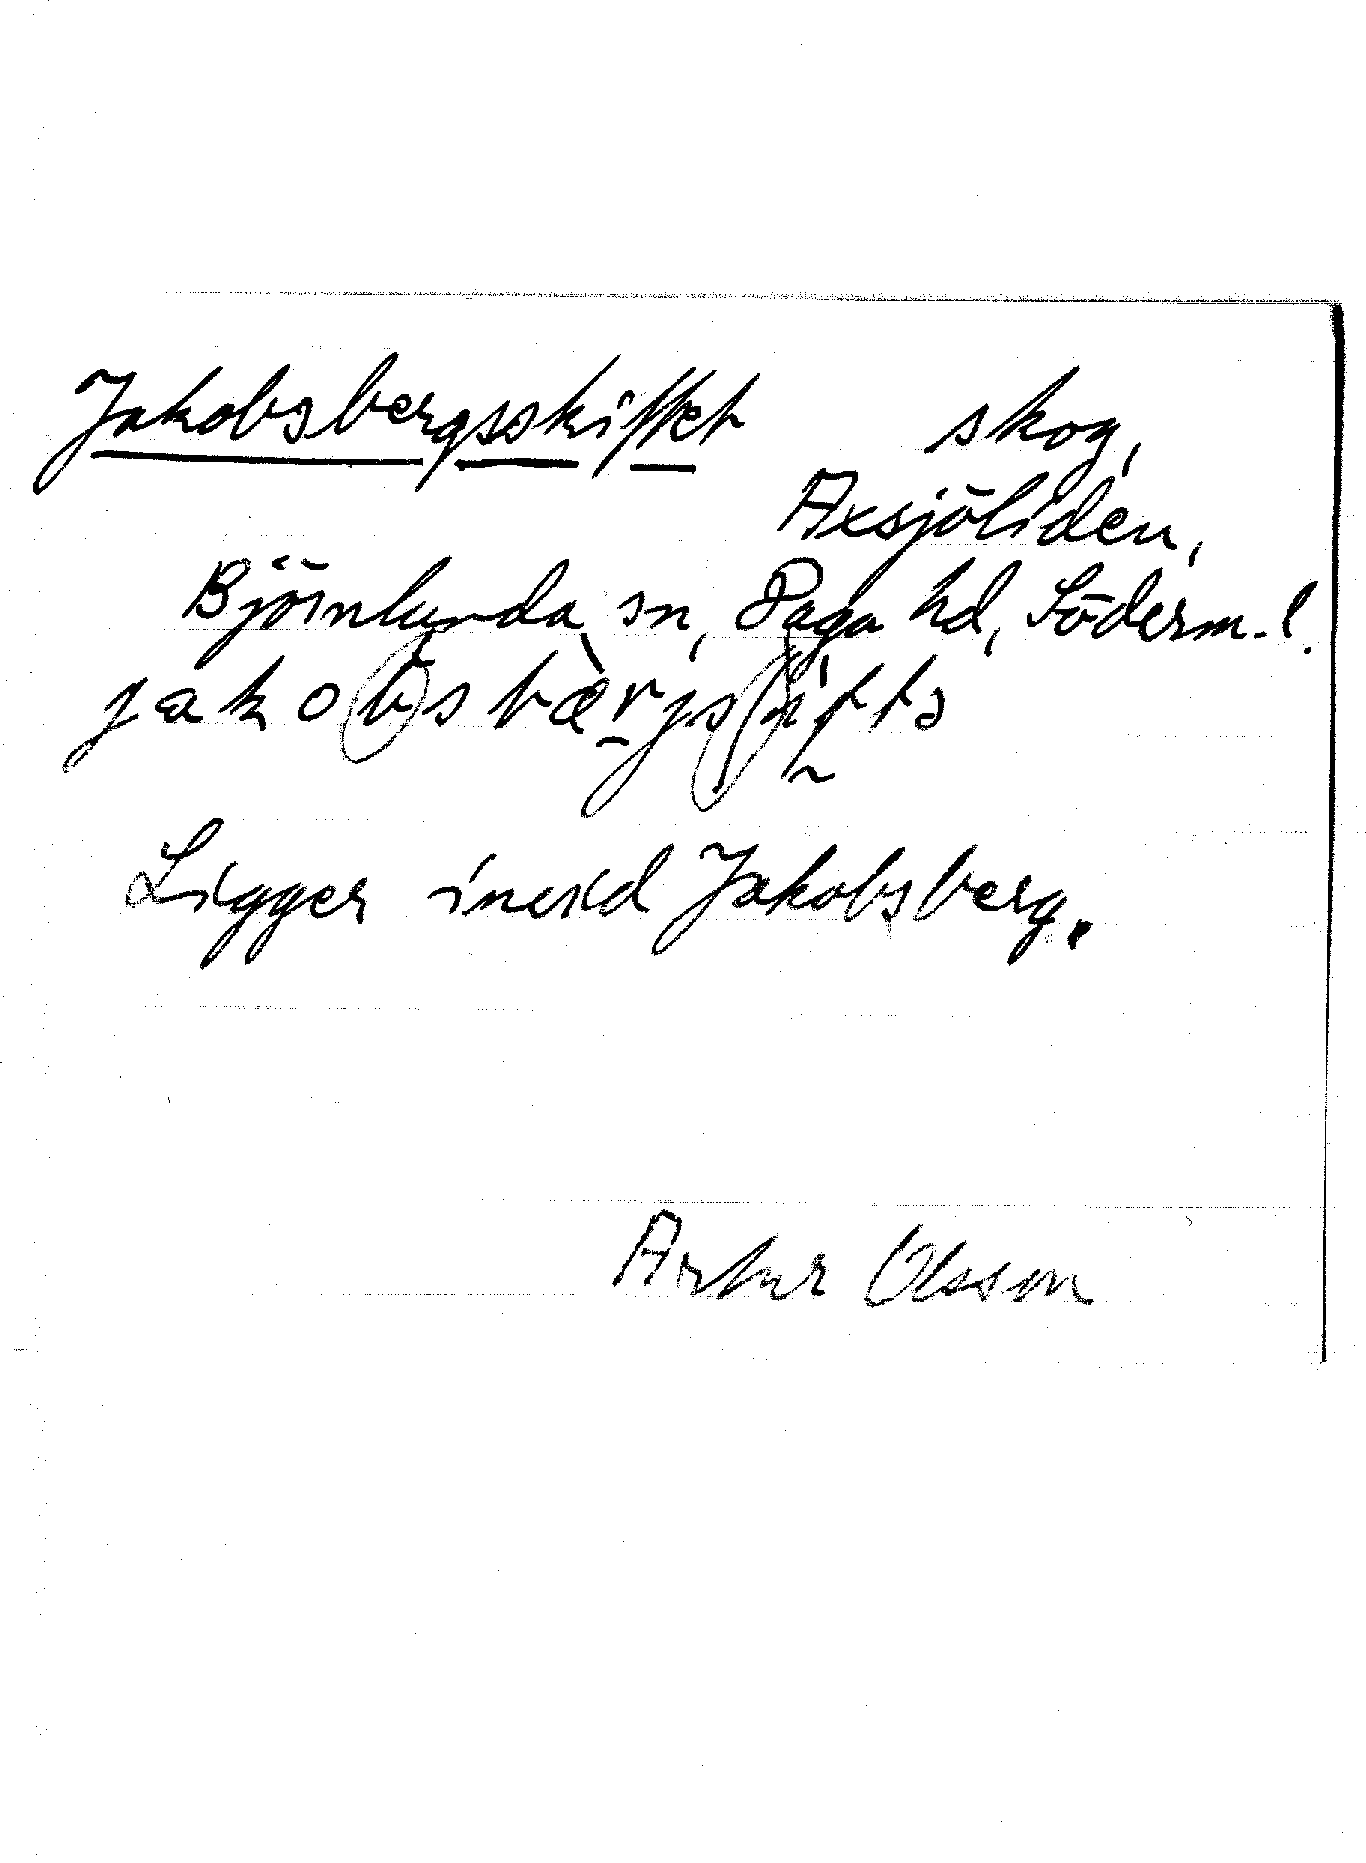 Jakobsbergsskiftet skog,
Axsjöliden,
Björnlunda sn, Daga hd, Söderm. l.
Ligger invid Jakobsberg.
Artur Olsson